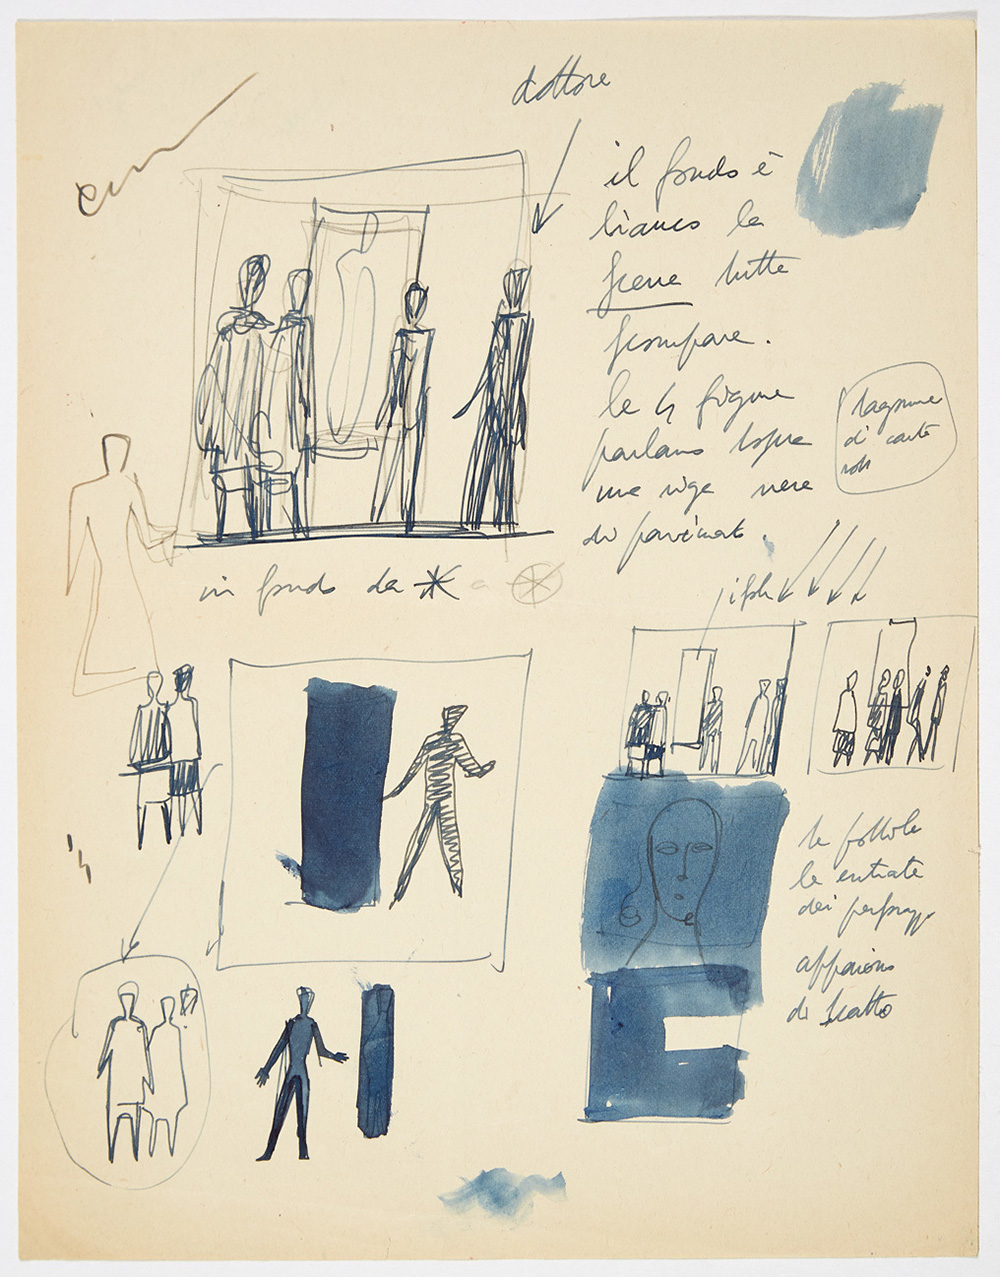 dottore
il fondo è
bianco le
scene tutte
scompare.
le 4 figure
parlano sopra
una riga nera
di paviment.
di carta
in fondo da
la follole
le entrate
dei personaggi
appaiono
di scatto